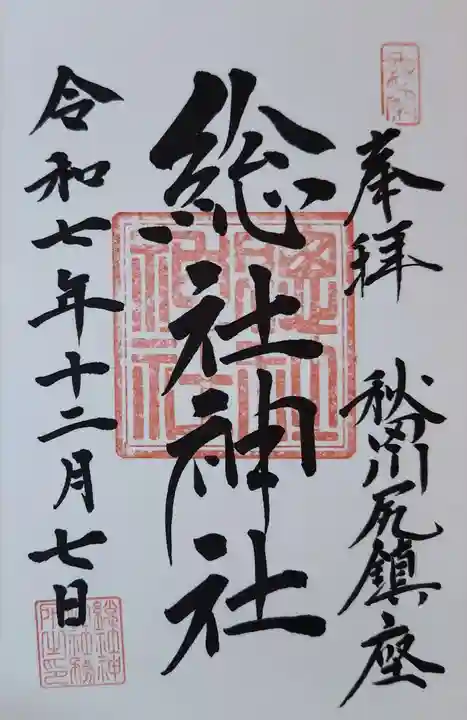 奉拝
秋田川尻鎮座
総社神社
令和七年十二月七日